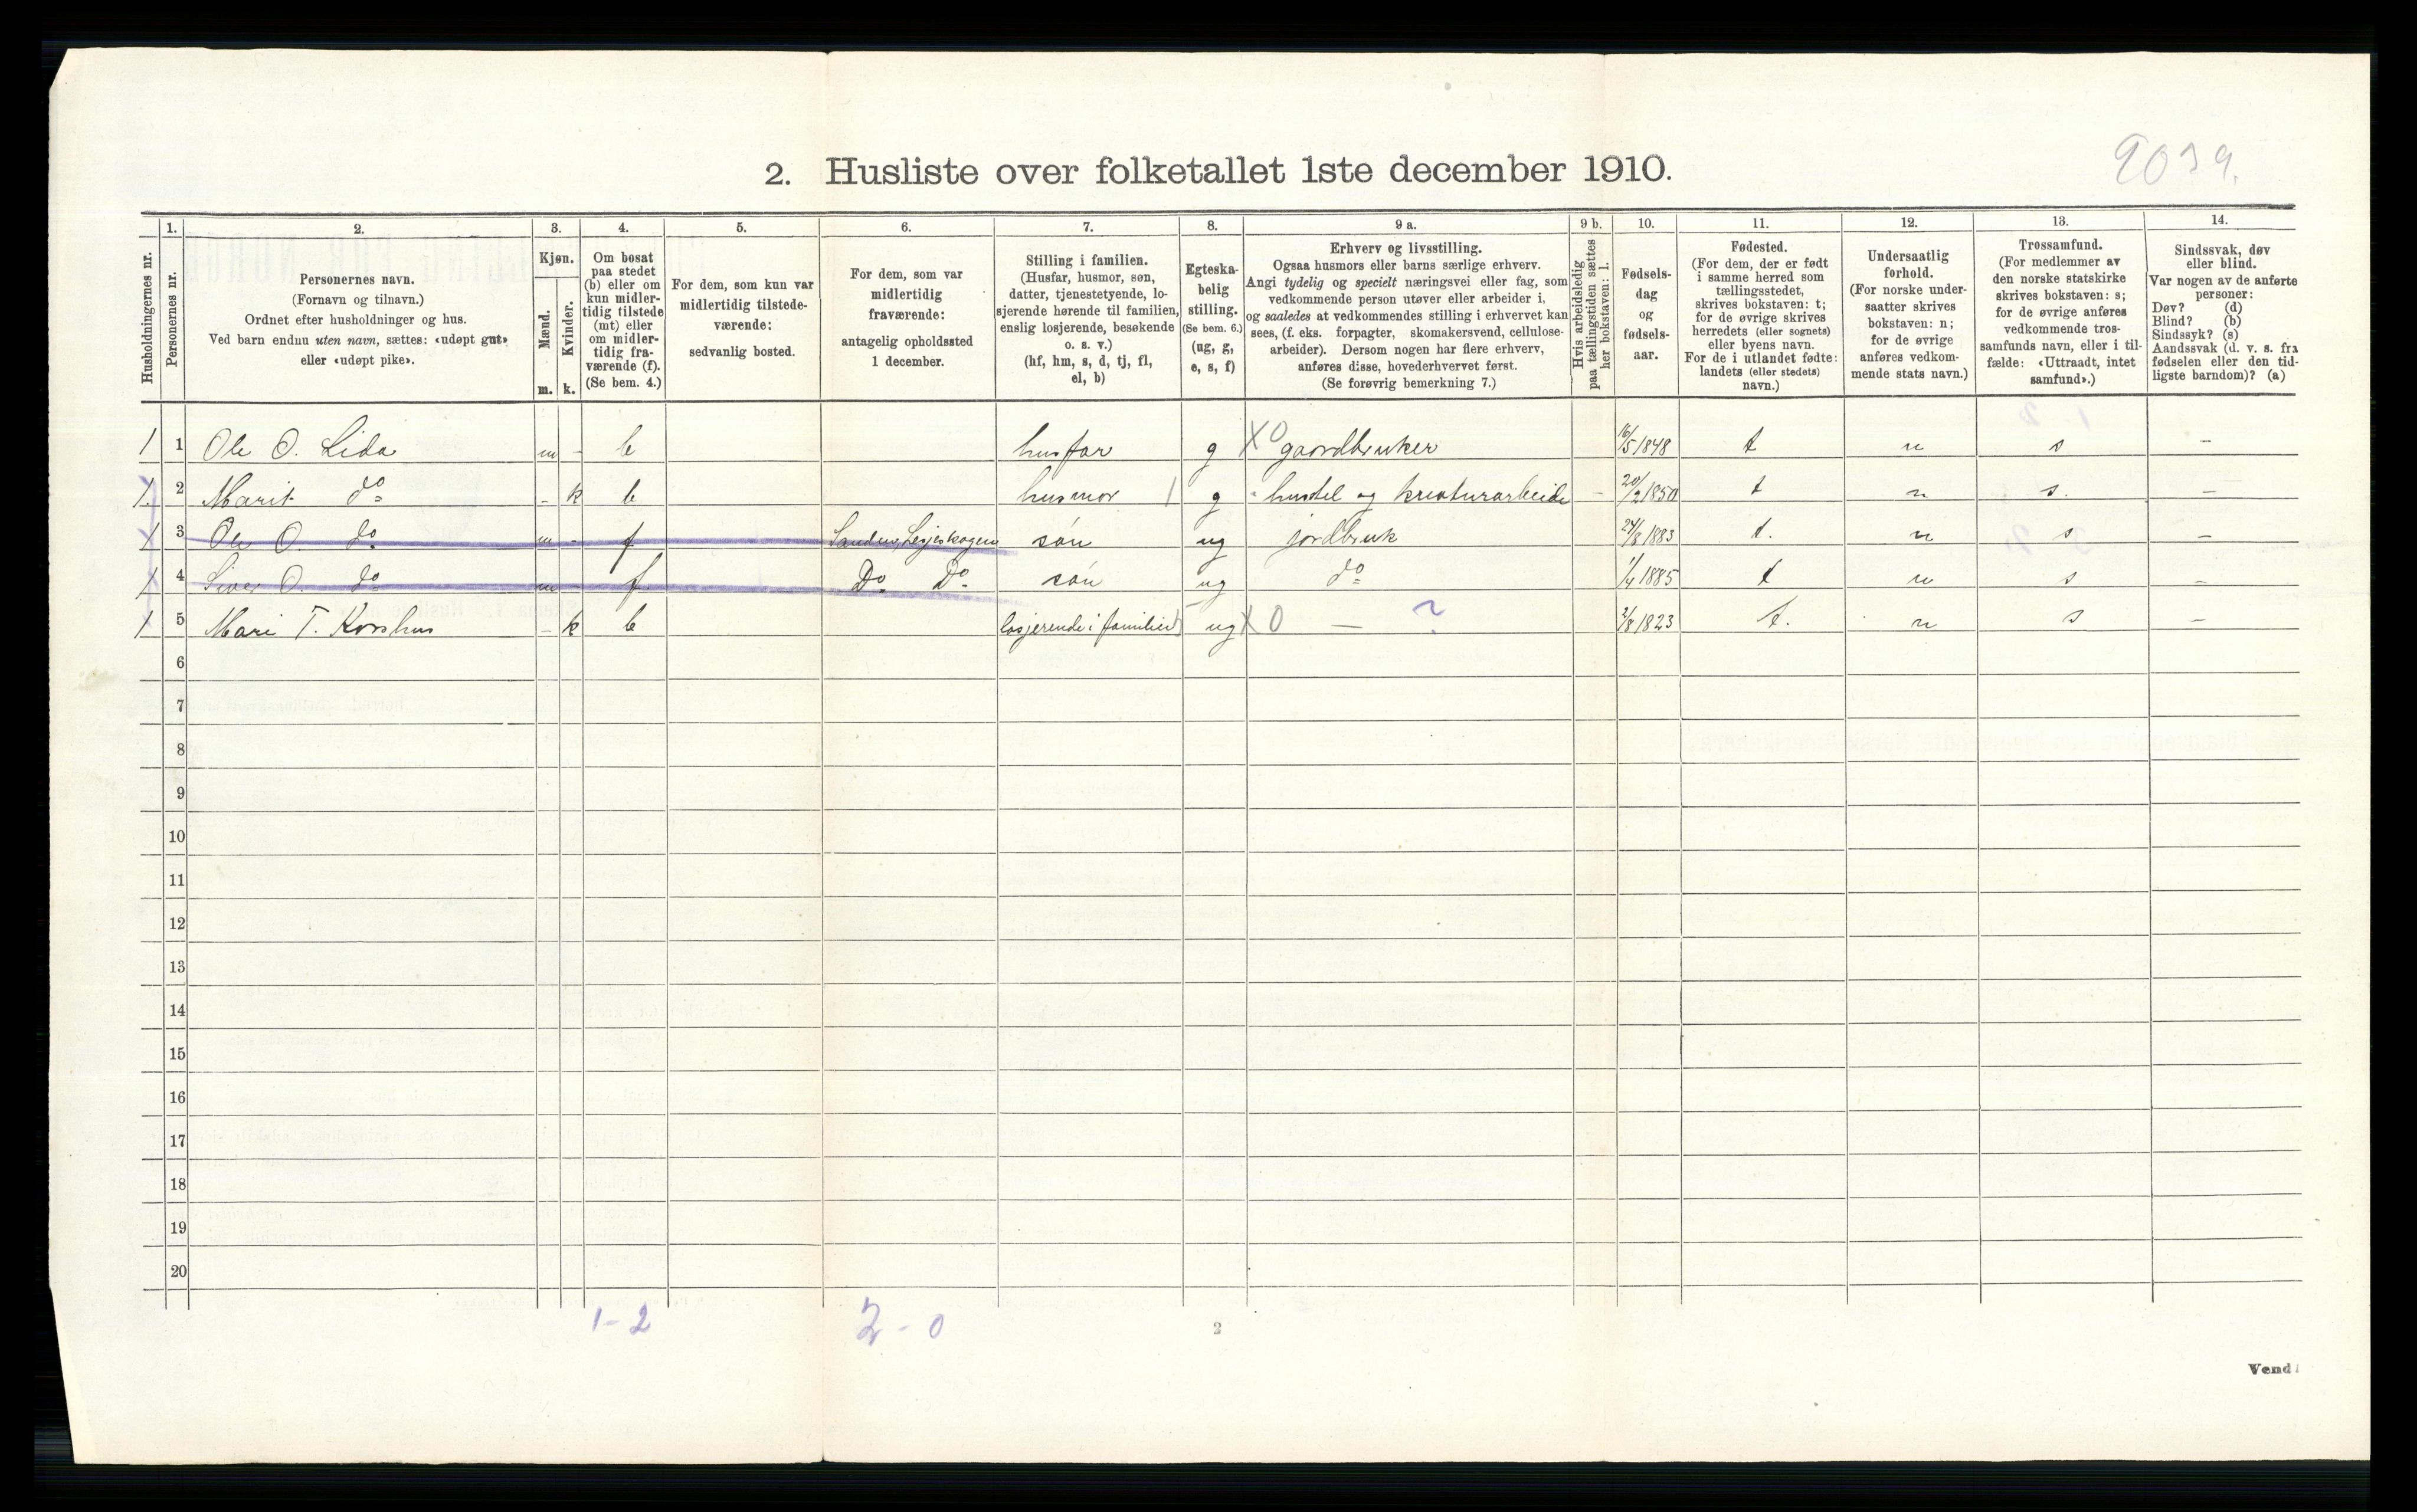 9039.
2. Husliste over folketallet 1ste december 1910.
Husholdningernes nr.
1. Personernes nr.
2. Personernes navn.
(Fornavn og tilnavn.)
Ordnet efter husholdninger og hus.
Ved barn endnu uten navn, sættes: «udøpt gut»
eller «udøpt pike».
3. Kjøn.
Mænd. m.
Kvinder. k.
4. Om bosat
paa stedet
(b) eller om
kun midler-
tidig tilstede
(mt) eller
om midler-
tidig fra-
værende (f).
(Se bem. 4.)
5. For dem, som kun var
midlertidig tilstede-
værende:
sedvanlig bosted.
6. For dem, som var
midlertidig
fraværende:
antagelig opholdssted
1 december.
7. Stilling i familien.
(Husfar, husmor, søn,
datter, tjenestetyende, lo-
sjerende hørende til familien,
enslig losjerende, besøkende
o. s. v.)
(hf, hm, s, d, tj, fl,
el, b)
8. Egteska-
belig
stilling.
(Se bem. 6.)
(ug, g,
e, s, f)
9 a. Erhverv og livsstilling.
Ogsaa husmors eller barns særlige erhverv.
Angi tydelig og specielt næringsvei eller fag, som
vedkommende person utøver eller arbeider i,
og saaledes at vedkommendes stilling i erhvervet kan
sees, (f. eks. forpagter, skomakersvend, cellulose-
arbeider). Dersom nogen har flere erhverv,
anføres disse, hovederhvervet først.
(Se forøvrig bemerkning 7.)
9 b. Hvis arbeidsledig
paa tællingstiden sættes
her bokstaven: l.
10. Fødsels-
dag
og
fødsels-
aar.
11. Fødested.
(For dem, der er født
i samme herred som
tællingsstedet,
skrives bokstaven: t;
for de øvrige skrives
herredets (eller sognets)
eller byens navn.
For de i utlandet fødte:
landets (eller stedets)
navn.)
12. Undersaatlig
forhold.
(For norske under-
saatter skrives
bokstaven: n;
for de øvrige
anføres vedkom-
mende stats navn.)
13. Trossamfund.
(For medlemmer av
den norske statskirke
skrives bokstaven: s;
for de øvrige anføres
vedkommende tros-
samfunds navn, eller i til-
fælde: «Uttraadt, intet
samfund».)
14. Sindssvak, døv
eller blind.
Var nogen av de anførte
personer:
Døv? (d)
Blind? (b)
Sindssyk? (s)
Aandssvak (d. v. s. fra
fødselen eller den tid-
ligste barndom)? (a)
1 1 Ole O. Lida m - b husfar g X0 gaardbruker 16/5 1848 t n s -
1. 2 Marit do - k b husmor 1 g husstel og kreaturarbeide - 20/2 1850 t n s. -
1 3 Ole O. do m - f Lesjeskogen søn ug jordbruk 24/8 1883 t. n s -
1 4 Siver O. do m - f Do Do søn ug do 1/4 1885 t n s -
1 5 Mari T. Korshus - k b losjerende i familien ug X0 - ? 2/8 1823 t. n s -
6
7
8
9
10
11
12
13
14
15
16
17
18
19
20
1-2 2-0
2
Vend!